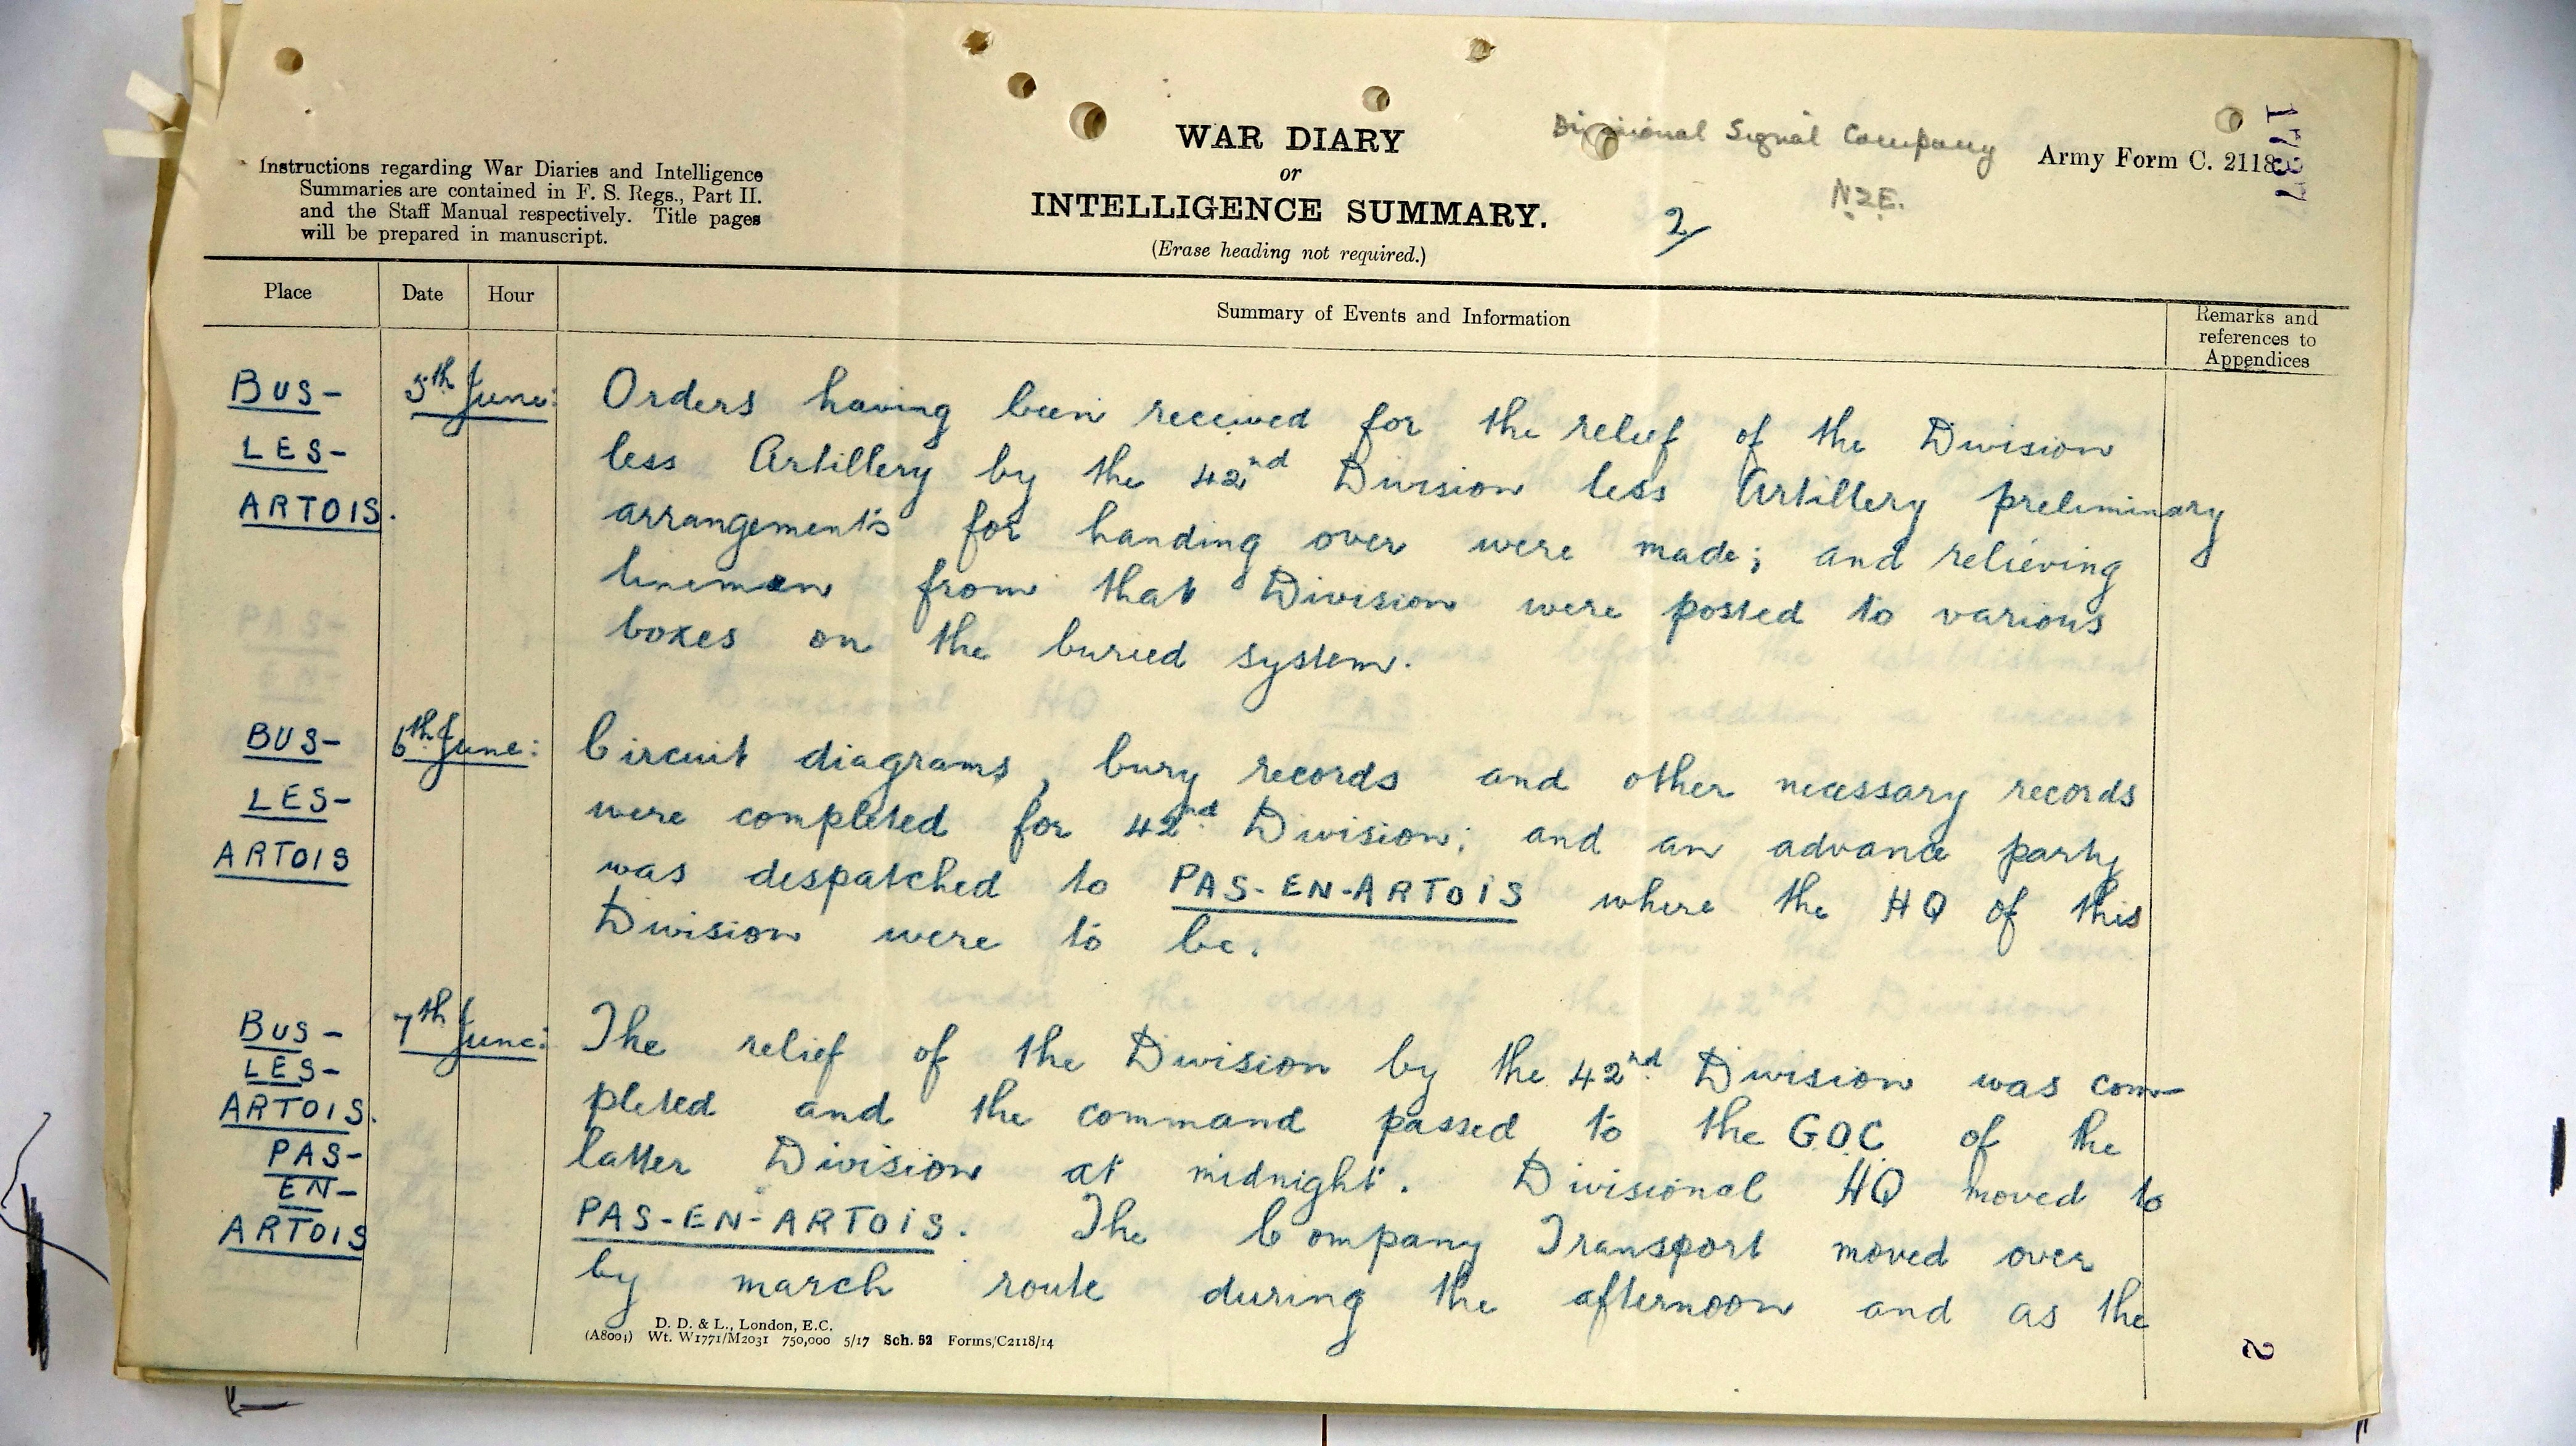 WAR DIARY
or
INTELLIGENCE SUMMARY.
(Erase heading not required.)
Instructions regarding War Diaries and Intelligence
Summaries are contained in F. S. Regs., Part II.
and the Staff Manual respectively. Title pages
will be prepared in manuscript.
Divisional Signal Company
N.Z.E.
Army Form C. 2118.
2/
Place
Date
Hour
Summary of Events and Information
Remarks and
references to
Appendices
BUS-
LES-
ARTOIS.
5th June:
Orders having been received for the relief of the Division
less Artillery by the 42nd Division less Artillery preliminary
arrangements for handing over were made; and relieving
linemen from that Division were posted to various
boxes on the buried system.
BUS-
LES-
ARTOIS
6th June:
Circuit diagrams, bury records and other necessary records
were completed for 42nd Division; and an advance party
was despatched to PAS-EN-ARTOIS where the HQ of this
Division were to be.
BUS-
LES-
ARTOIS.
PAS-
EN-
ARTOIS
7th June:
The relief of the Division by the 42nd Division was com-
pleted and the command passed to the G.O.C. of the
latter Division at midnight. Divisional HQ moved to
PAS-EN-ARTOIS. The Company Transport moved over
by march route during the afternoon and as the
D. D. & L., London, E.C.
(A8001) Wt. W1771/M2031 750,000 5/17 Sch. 52 Forms/C2118/14
2